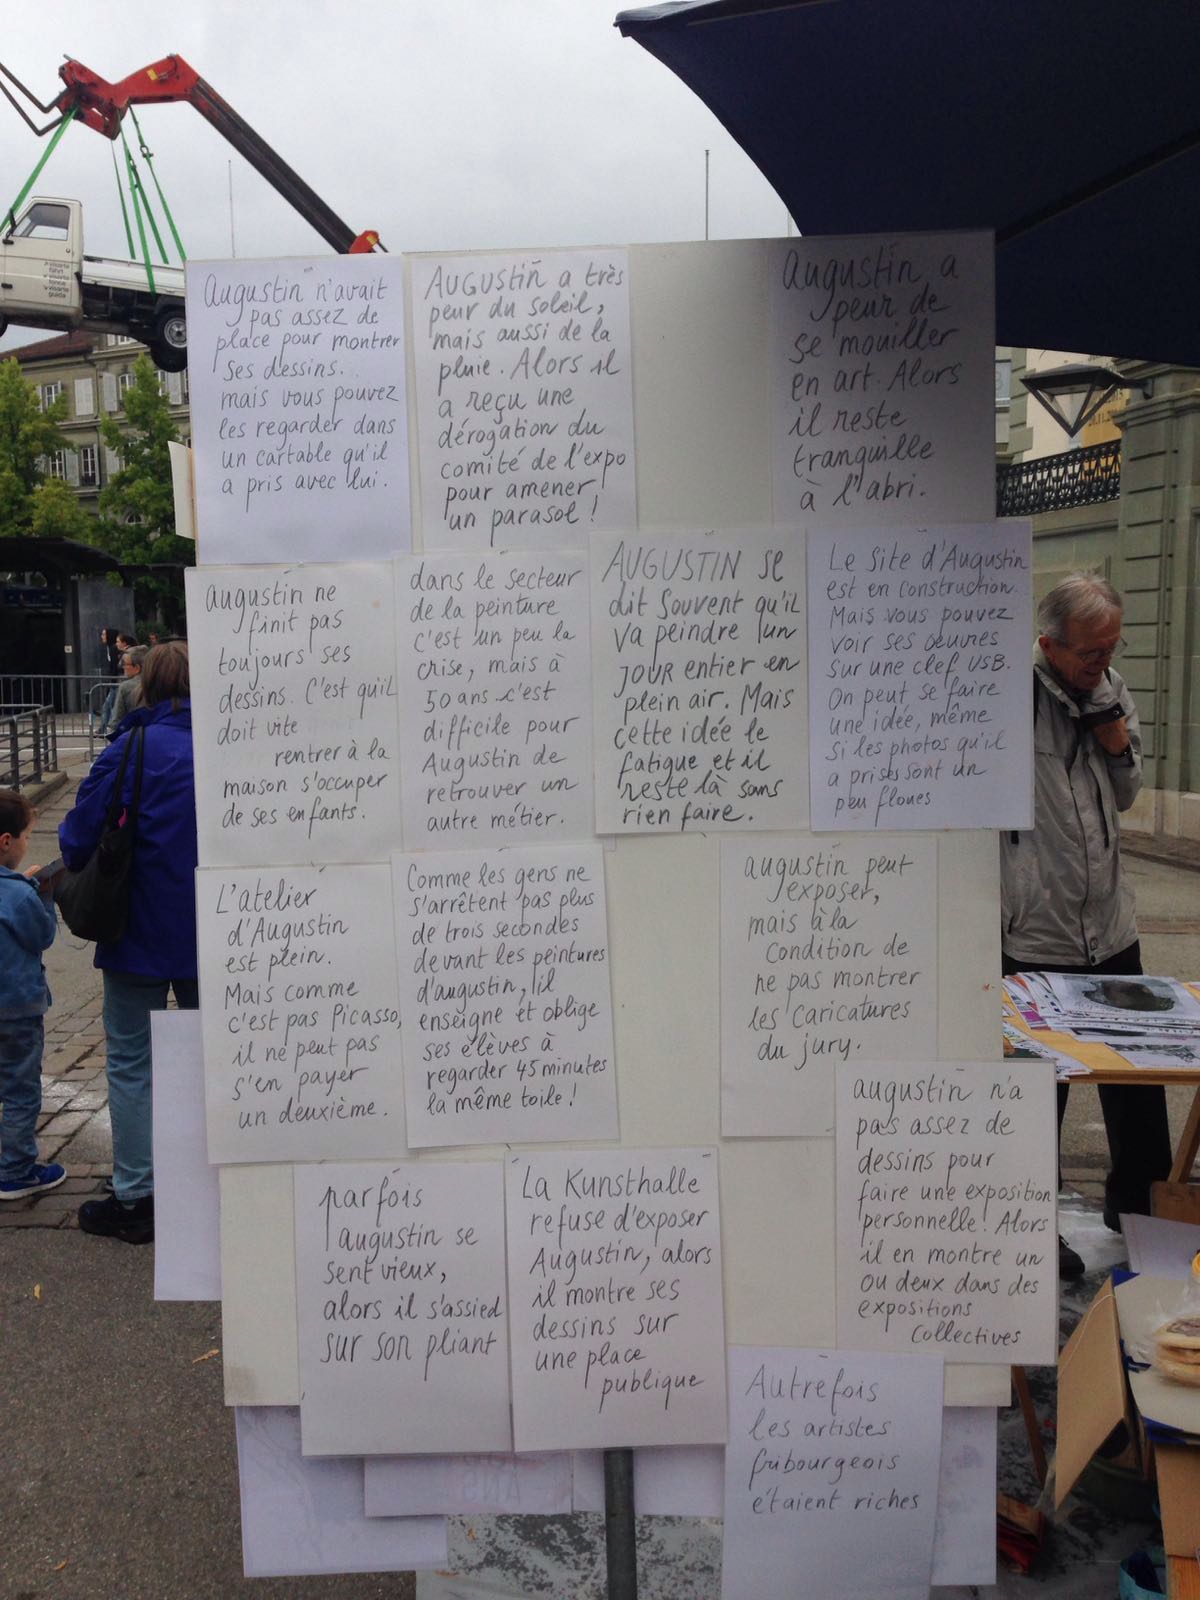 Augustin n'avait
pas assez de
place pour montrer
ses dessins.
mais vous pouvez
les regarder dans
un cartable qu'il
a pris avec lui.
AUGUSTIN a très
peur du soleil,
mais aussi de la
pluie. Alors il
a reçu une
dérogation du
comité de l'expo
pour amener
un parasol !
Augustin a
peur de
se mouiller
en art. Alors
il reste
tranquille
à l'abri.
augustin ne
finit pas
toujours ses
dessins. C'est qu'il
doit vite
rentrer à la
maison s'occuper
de ses enfants.
dans le secteur
de la peinture
c'est un peu la
crise, mais à
50 ans c'est
difficile pour
Augustin de
retrouver un
autre métier.
AUGUSTIN se
dit souvent qu'il
va peindre un
JOUR entier en
plein air. Mais
cette idée le
fatigue et il
reste là sans
rien faire.
Le Site d'Augustin
est en construction.
Mais vous pouvez
voir ses oeuvres
sur une clef USB.
On peut se faire
une idée, même
si les photos qu'il
a prises sont un
peu floues
L'atelier
d'Augustin
est plein.
Mais comme
c'est pas Picasso,
il ne peut pas
s'en payer
un deuxième.
Comme les gens ne
s'arrêtent pas plus
de trois secondes
devant les peintures
d'augustin, il
enseigne et oblige
ses élèves à
regarder 45 minutes
la même toile !
augustin peut
exposer,
mais à la
condition de
ne pas montrer
les caricatures
du jury.
augustin n'a
pas assez de
dessins pour
faire une exposition
personnelle! Alors
il en montre un
ou deux dans des
expositions
collectives
parfois
augustin se
sent vieux,
alors il s'assied
sur son pliant
La Kunsthalle
refuse d'exposer
Augustin, alors
il montre ses
dessins sur
une place
publique
Autrefois
les artistes
fribourgeois
étaient riches